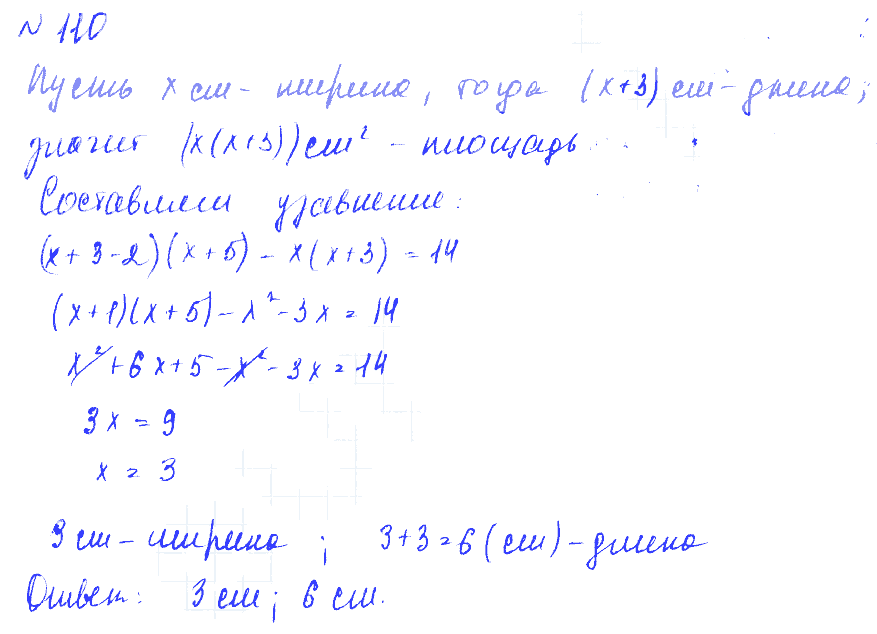 № 110
Пусть x см - ширина, тогда (x+3) см - длина;
значит (x(x+3)) см² - площадь.
Составляем уравнение:
(x+3-2)(x+5) - x(x+3) = 14
(x+1)(x+5) - x² - 3x = 14
x² + 6x + 5 - x² - 3x = 14
3x = 9
x = 3
3 см - ширина ; 3+3=6 (см) - длина
Ответ: 3 см; 6 см.